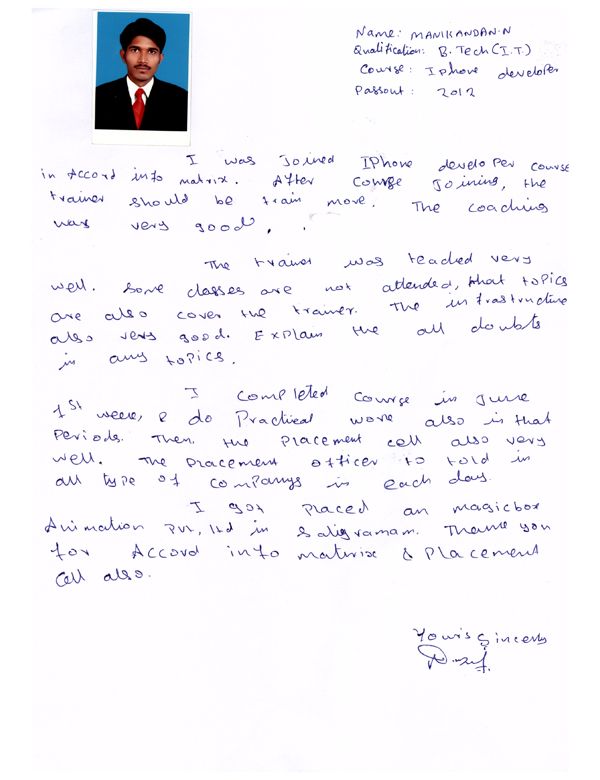 Name: MANIKANDAN.N
Qualification: B.Tech(I.T.)
Course: Iphone developer
Passout: 2012
I was joined IPhone developer course
in Accord info matrix. After course joining, the
trainer should be train more. The coaching
was very good.
The trainer was teached very
well. Some classes are not attended, that topics
are also cover the trainer. The infrastructure
also very good. Explain the all doubts
in any topics.
I completed course in June
1st week, & do Practical work also is that
Periods. Then, the placement cell also very
well. The placement officer to told in
all type of companys in each day.
I got placed an magicbox
Animation Pvt, ltd in Saligramam. Thank you
for Accord info materix & Placement
cell also.
Your's Sincerly